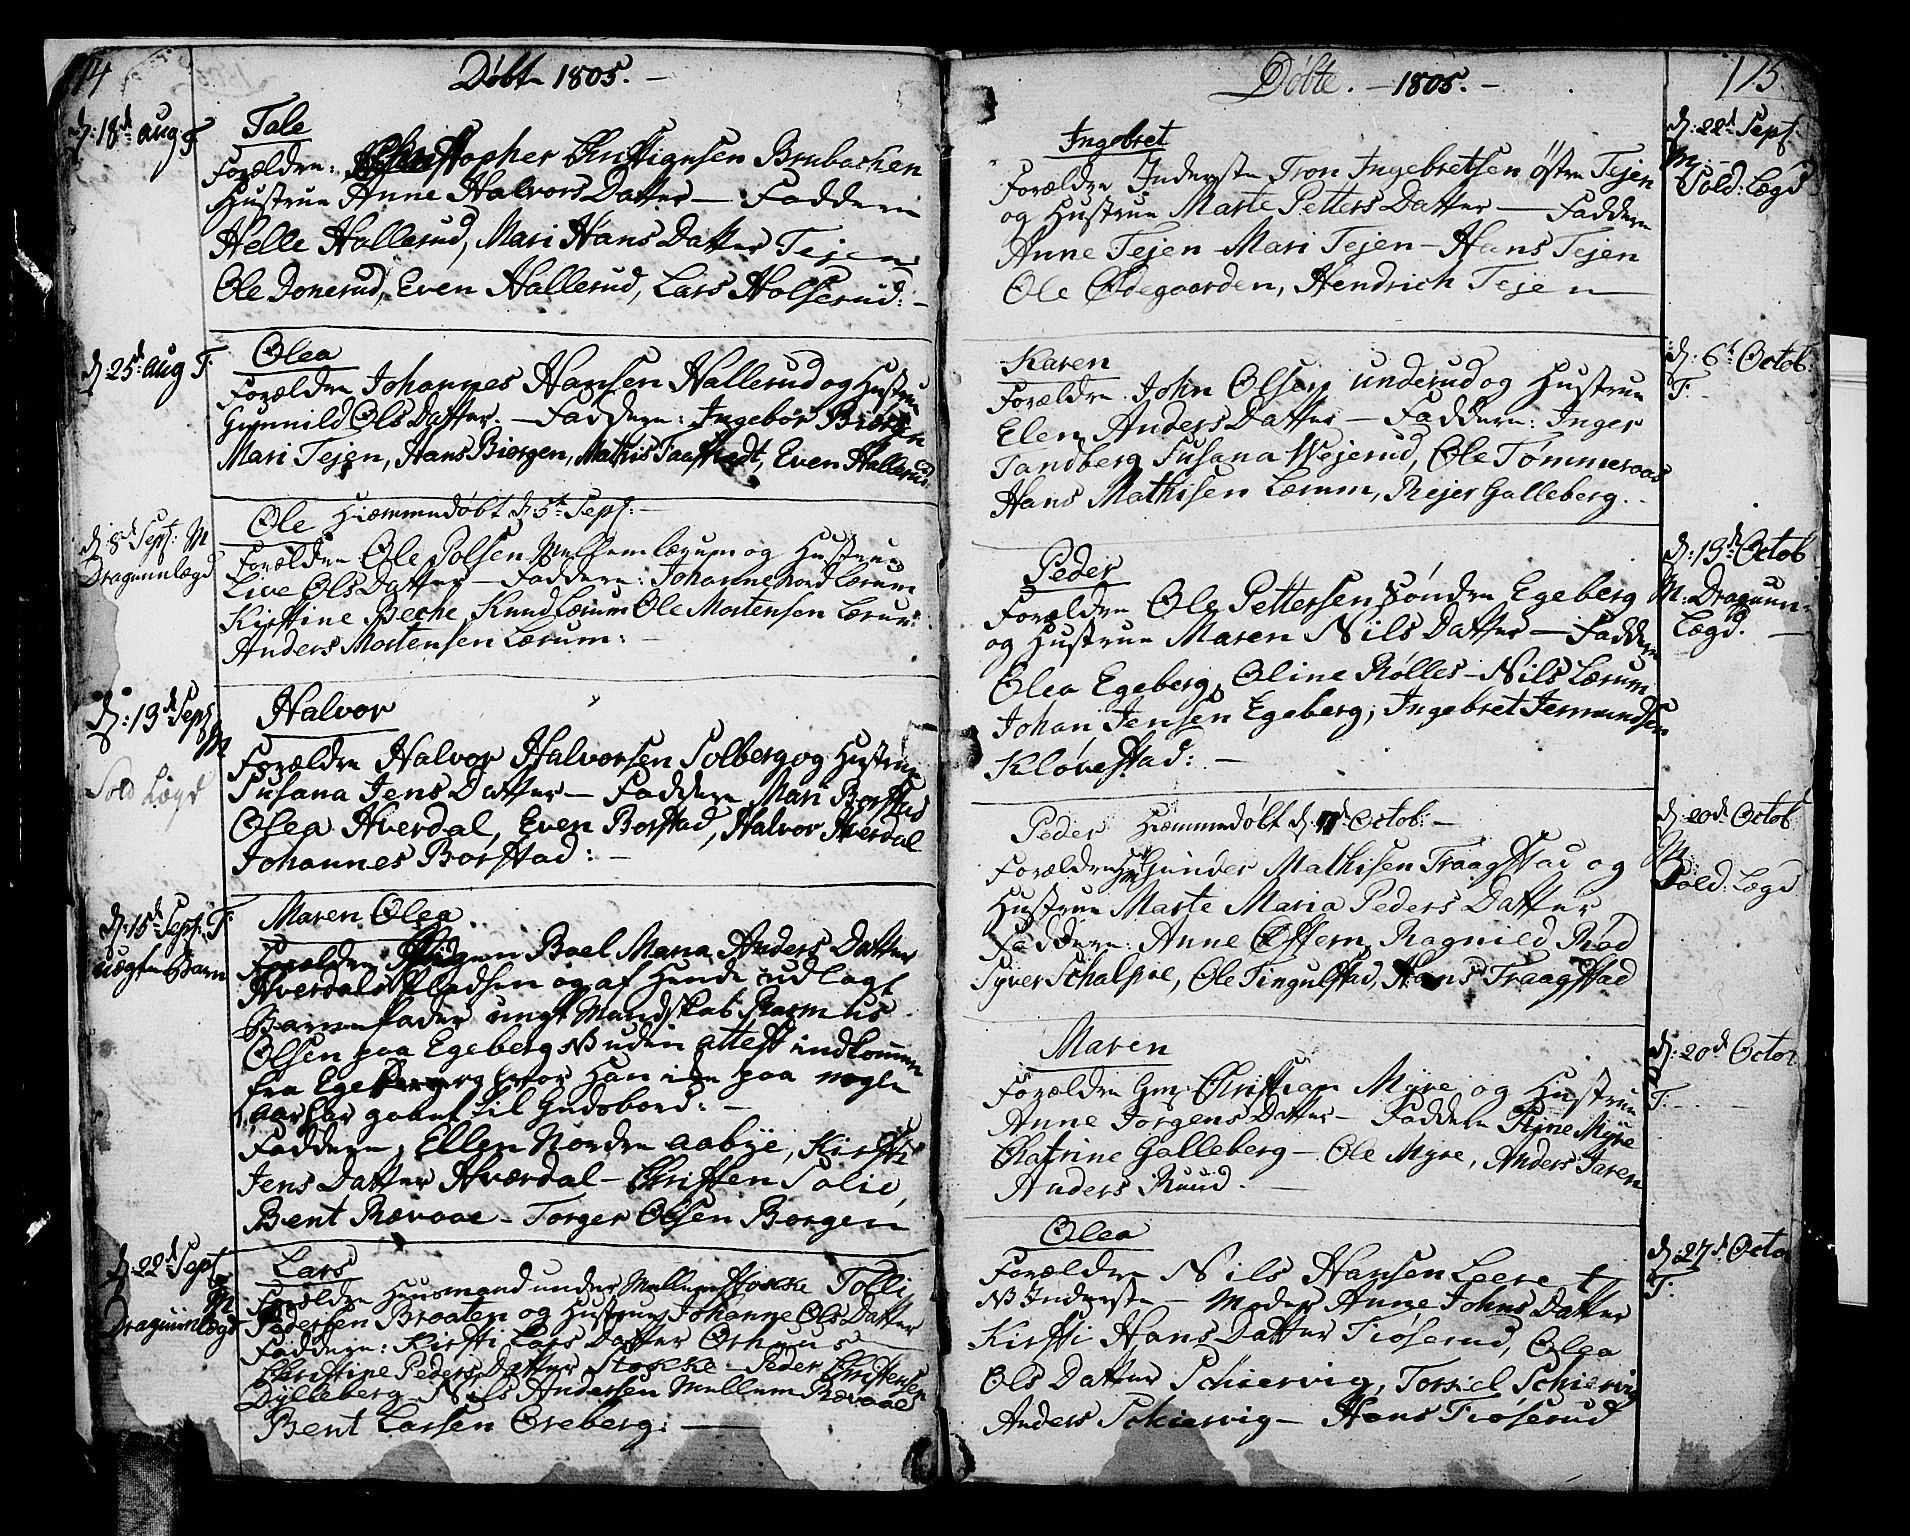 Døbt 1805. -
d: 18d aug: F
Tale
Forældre: Christopher Christiansen Brubachen
Hustrue Anne Halvors Datter — Faddere
Helle Hallerud, Mari Hans Datter Tejen
Ole Donerud, Even Hallerud, Lars Holserud: -
d 25d aug F.
Olea
Forældre Johannes Hansen Hallerud og Hustrue
Gunnild Ols Datter — Faddere: Ingebor Biørgen
Mari Tejen, Hans Biørgen, Mathis Taastadt, Even Hallerud
d 8d Sept: M
Dragunnlægd
Ole Hiemmedøbt d 5te Sept: -
Forældre Ole Polsen Mellem lærum og Hustrue
Live Ols Datter — Faddere: Johanne nord Lærum
Kirstine Beche, Knud Lærum Ole Mortensen Lærum:
Anders Mortensen Lærum: -
d: 13d Sept
M
Sold Lægd
Halvor
Forældre Halvor Halvorsen Solberg og Hustrue
Susana Jens Datter — Faddere Mari Borstad
Olea Hverdal, Even Borstad, Halvor Hverdal
Johannes Borstad: -
d: 15d Sept. F:
uægte Barn
Maren Olea
Forældre Pigen Boel Maria Anders Datter
Hverdals Pladsen og af Hende udlagt
Barnefader ungt Mandskab Rasmus
Olsen paa Egeberg NB uden attest indkommen
fra Egeberg hvor Han ike paa nogle
aar har gaaet til Gudsbord: -
Faddere, Ellen Nordre aabye, Kirsti
Jens Datter Hværdal - Christen Solie,
Bent Rævaae - Torger Olsen Borgen
d 22d Sept
M
Dragunnlægd
Lars
Forældre Huusmand under Mellem Stokke Tolli
Pedersen Braaten og Hustrue Johanne Ols Datter
Faddere: Kirsti Lars Datter Orhuus
Christine Peders Datter Stokke - Peder Christensen
Dylleberg - Nils Andersen Mellum Rævaaes
Bent Larsen Oreberg: —
Døbte. - 1805. -
115.
Ingebret
d: 22d Sept.
M: -
Sold: Lægd
Forældre Inderste Tron Ingebretsen östre Tejen
og Hustrue Marte Petters Datter — Faddere
Anne Tejen - Mari Tejen - Hans Tejen
Ole Ødegaarden, Hendrich Tejen —
Karen
d: 6t Octob:
F. -
Forældre John Olsen underud og Hustrue
Elen Anders Datter — Faddere: Inger
Tandberg Susana Wejerud, Ole Tømmeraas
Hans Mathisen Lærum, Rejer Galleberg. -
Peder
d: 13d Octob
M: Dragunn-
Lægd. -
Forældre Ole Pettersen søndre Egeberg
og Hustrue Maren Nils Datter — Faddere
Olea Egeberg, Oline Rølles - Nils Lærum
Johan Jensen Egeberg, Ingebret Jermundsen
Kløvestad: -
Peder Hiemmedøbt d. 11d Octob: -
d: 20d Octob:
M:
Sold: Lægd
Forældre Hm Gunder Mathisen Traagstad og
Hustrue Marte Maria Peders Datter
Faddere: Anne Østern, Ragnild Rød
Syver Schalpe, Ole Tingulstad, Hans Traagstad
Maren
d: 20d Octob
F. -
Forældre Gm: Christian Myre og Hustrue
Anne Jorgens Datter - Faddere Syne Myre
Chatrine Galleberg - Ole Myre, Anders Jaren
Anders Ruud. -
Olea
d: 27d Octo
F:
Forældre Nils Hansen Leere †
NB Inderste - Moder Anne Johns Datter
Kirsti Hans Datter Tiøserud, Olea
Ols Datter Schiervig, Torkiel Schiervig
Anders Schiervig - Hans Tiøserud